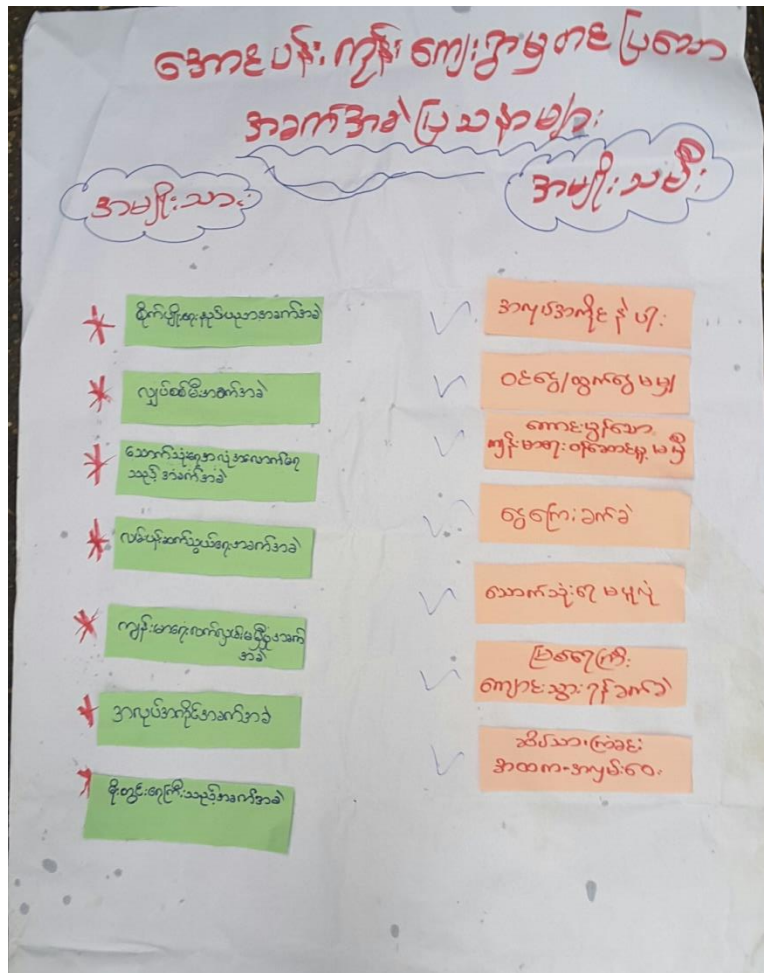 အောင်ပန်းကုန်း ကျေးရွာမှတင်ပြသော
အခက်အခဲပြသနာများ
အမျိုးသား
အမျိုးသမီး
စိုက်ပျိုးရေးနည်းပညာအခက်အခဲ
လျှပ်စစ်မီးအခက်အခဲ
သောက်သုံးရေအလုံအလောက်မရ
သည့် အခက်အခဲ
လမ်းပန်းဆက်သွယ်ရေးအခက်အခဲ
ကျန်းမာရေးလက်လှမ်းမမှီမှုအခက်
အခဲ
အလုပ်အကိုင်အခက်အခဲ
မိုးတွင်းရေကြီးသည့်အခက်အခဲ
အလုပ်အကိုင် နဲပါး
ဝင်ငွေ/ထွက်ငွေ မမျှ
ကောင်းမွန်သော
ကျန်းမာရေး ဝန်ဆောင်မှု မရှိ
ငွေကြေး ခက်ခဲ
သောက်သုံးရေ မမူလုံ
မြစ်ရေကြီး
ကျောင်းသွားရန်ခက်ခဲ
ဆိပ်သာ၊ကြံခင်း
အထက-အလှမ်းဝေး